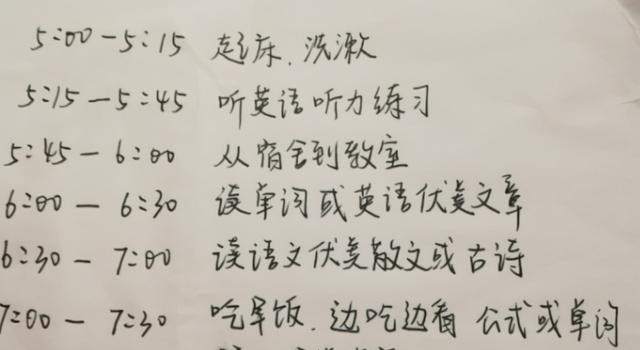 5:00-5:15 起床、洗漱
5:15-5:45 听英语听力练习
5:45-6:00 从宿舍到教室
6:00-6:30 读单词或英语优美文章
6:30-7:00 读语文优美散文或古诗
7:00-7:30 吃早饭、边吃边看 公式或单词